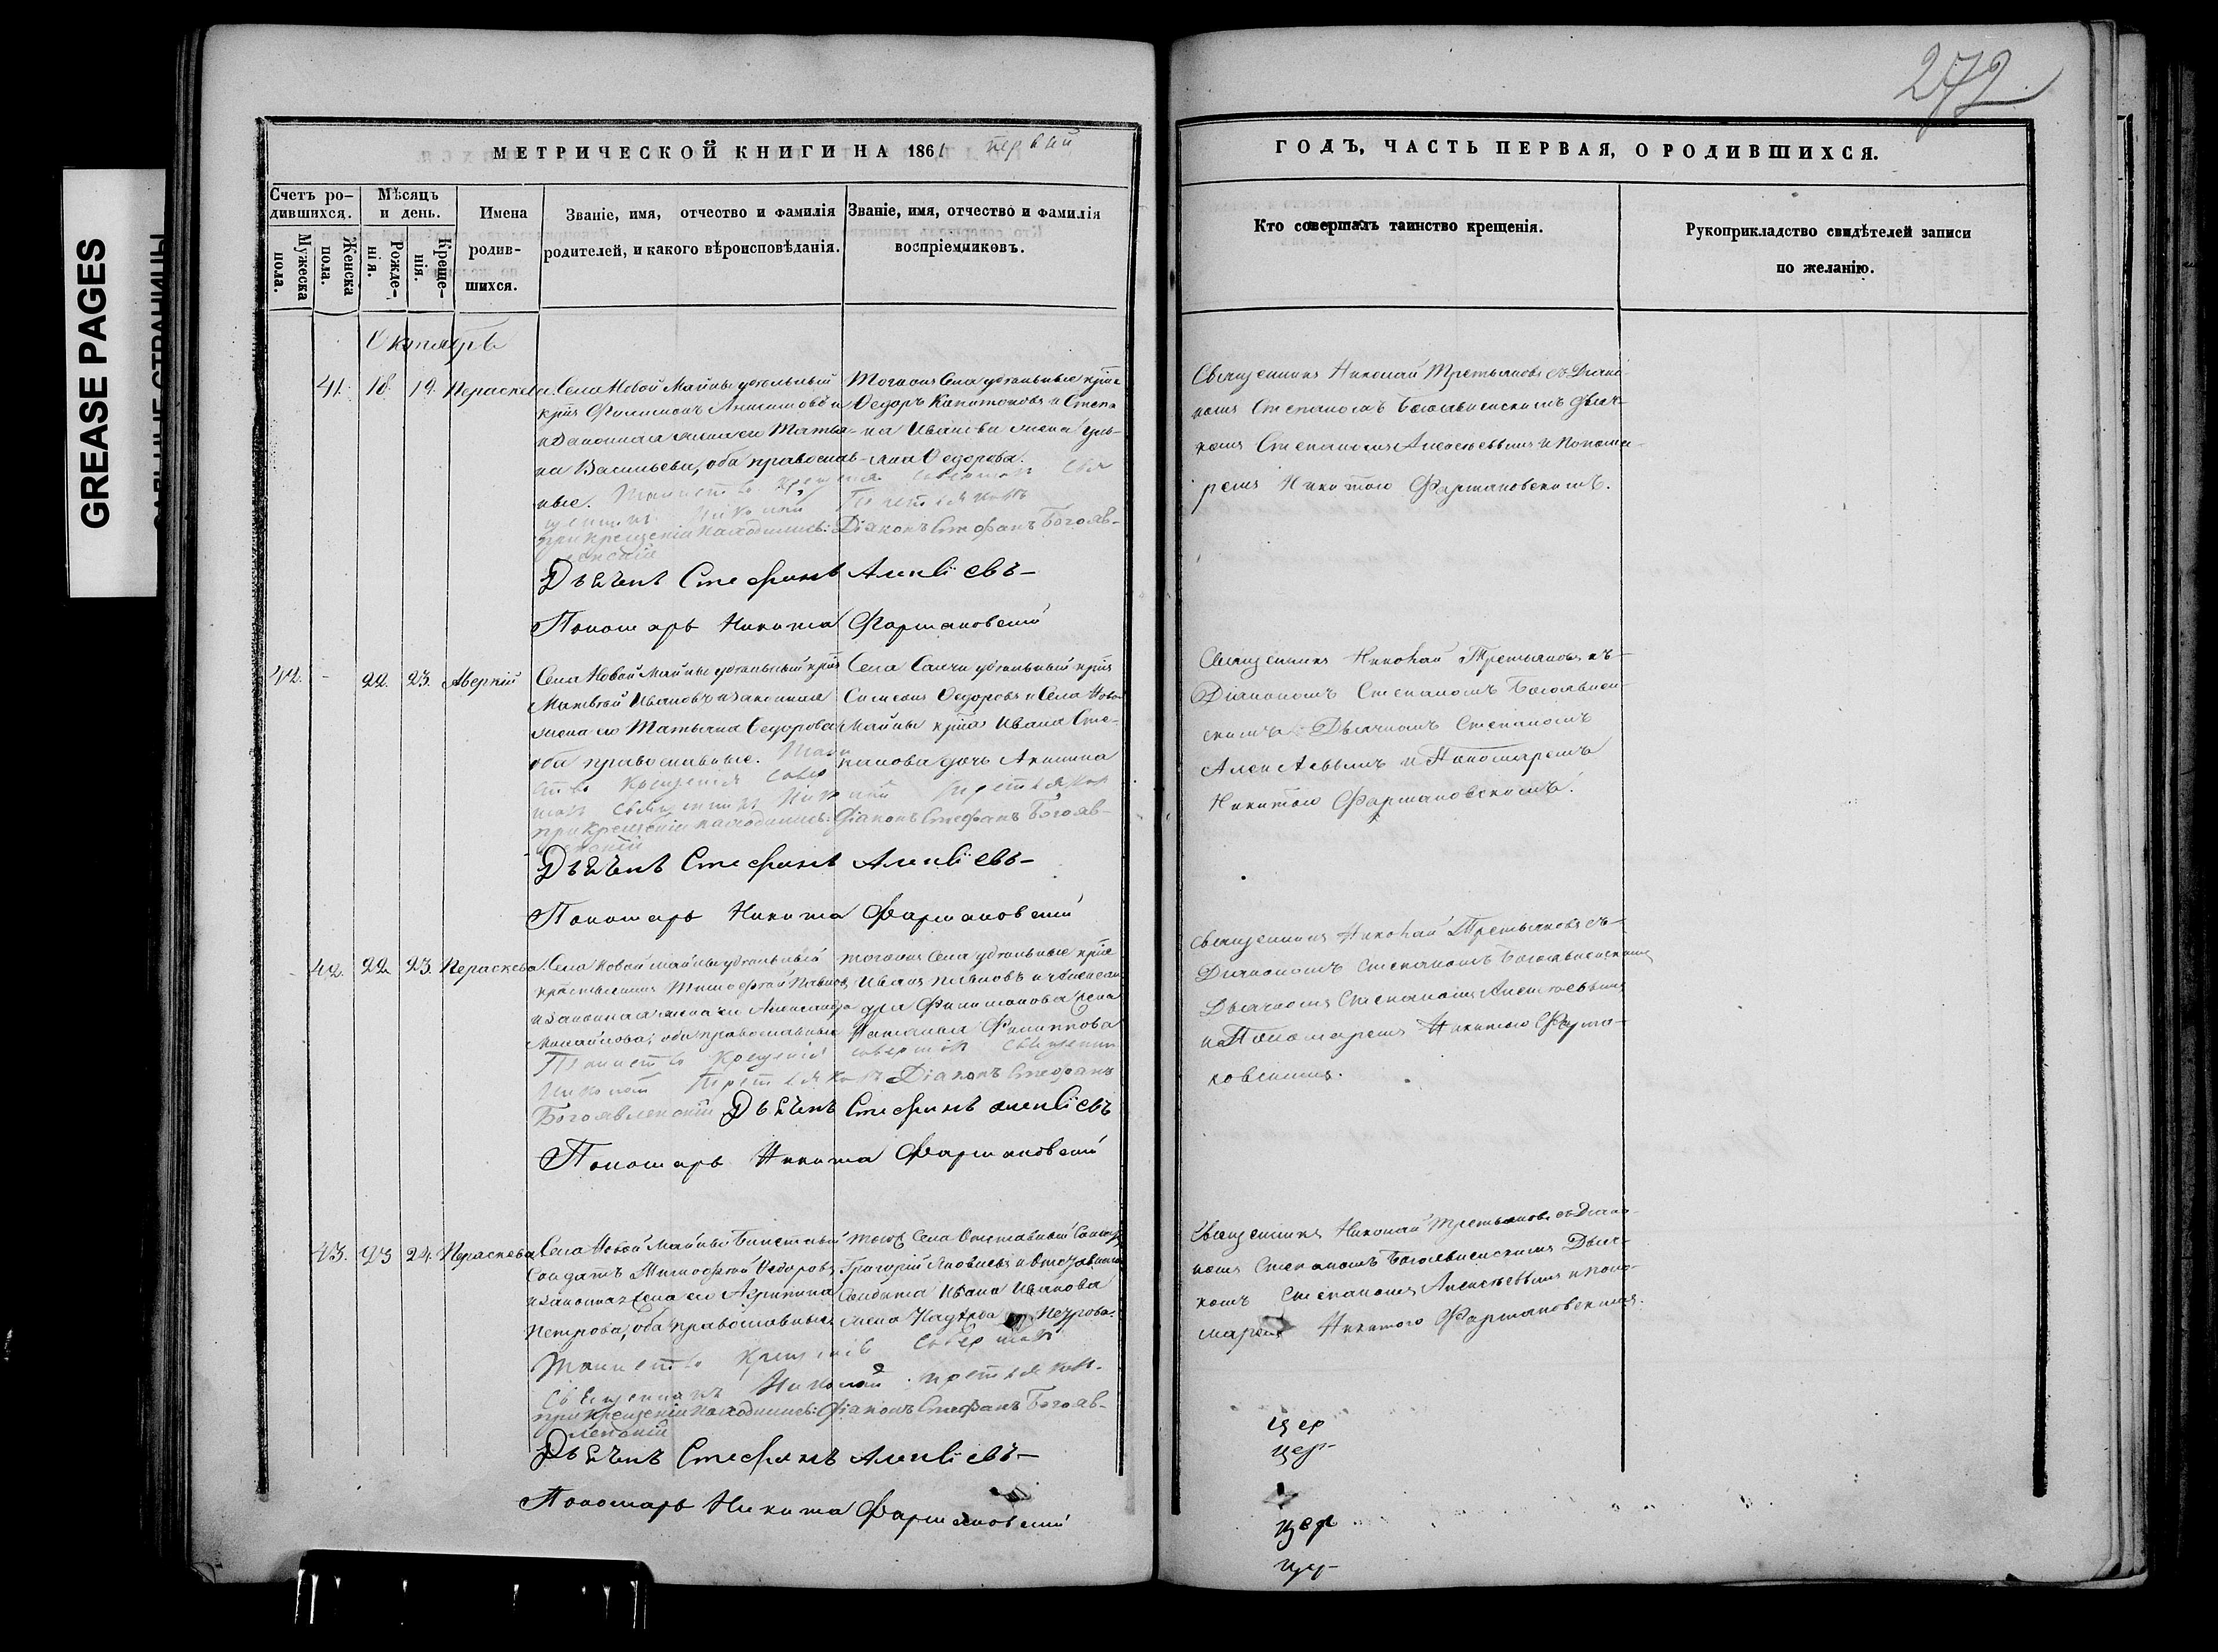 GREASE PAGES
272
МЕТРИЧЕСКОЙ КНИГИ НА 1861 первый
Счетъ ро-
дившихся.
Мужеска
пола.
Женска
пола.
Мѣсяцъ
и день.
Рожде-
нія.
Креще-
нія.
Имена
родив-
шихся.
Званіе, имя, отчество и фамилія
родителей, и какого вѣроисповѣданія.
Званіе, имя, отчество и фамилія
воспріемниковъ.
Октябрь
41. 18. 19. Параскева
Села Новой Майны удѣльный
и законная жена его Татья-
на Васильева, оба православ-
ные. Таинство крещенія совершалъ Свя
щенникъ Николай Третьяковъ
при крещеніи находились: Діаконъ Стефанъ Богояв-
ленскій
Дьячекъ Стефанъ Алексіевъ
Пономарь Никита Фармаковскій
Тогоже Села удѣльные
Федоръ Капитоновъ и Степа
на Иванова жена Уль-
яна Федорова.
42. - 22. 23. Аверкій
Села Новой Майны удѣльный
Матвѣй Ивановъ и законная
жена его Татьяна Федорова
оба православные. Таин
ство крещенія совер
шалъ Священникъ Николай Третьяков
при крещеніи находились: Діаконъ Стефанъ Богояв-
ленскій
Дьячекъ Стефанъ Алексіевъ
Пономарь Никита Фармаковскій
Симеонъ Федоровъ и Села Ново
Майны Ивана Сте-
панова дочь Акилина
42. 22. 23. Параскева
Села Новой Майны удѣльный
крестьянинъ Тимофей
и законная жена его Александра
Михайлова; оба православные
Таинство крещенія совершалъ Священни
Николай Третьяковъ Діаконъ Стефанъ
Богоявленскій Дьячекъ Стефанъ Алексіевъ
Пономарь Никита Фармаковскій
Тогоже Села удѣльные
Филимонова жена
Филиппова
43. 23 24. Параскева
Села Новой Майны
Солдатъ Тимофей Федоровъ
и законная жена его Агрипина
Петрова, оба православные.
Таинство крещеніе совершалъ
Священникъ Николай Третьяков.
при крещеніи находились: Діаконъ Стефанъ Богояв-
ленскій
Дьячекъ Стефанъ Алексіевъ
Пономарь Никита Фармаковскій
Тогоже Села Отставный Солдатъ
Григорій Яковлевъ и
Солдата Ивана Иванова
жена Петрова.
ГОДЪ, ЧАСТЬ ПЕРВАЯ, О РОДИВШИХСЯ.
Кто совершалъ таинство крещенія.
Рукоприкладство свидѣтелей записи
по желанію.
Священникъ Николай Третьяковъ съ Діако-
номъ Степаномъ Богоявленскимъ Дьяч-
комъ Степаномъ Алексѣевымъ и Понома-
ремъ Никитою Фармаковскимъ.
Священникъ Николай Третьяковъ съ
Діакономъ Степаномъ Богоявлен-
скимъ Дьячкомъ Степаномъ
Алексѣевымъ и Пономаремъ
Никитою Фармаковскимъ.
Священникъ Николай Третьяковъ съ
Діакономъ Степаномъ Богоявленскимъ
Дьячкомъ Степаномъ Алексѣевымъ
и Пономаремъ Никитою Фарма-
ковскимъ.
Священникъ Николай Третьяковъ съ Діако-
номъ Степаномъ Богоявленскимъ Дьяч-
комъ Степаномъ Алексѣевымъ и Поно-
маремъ Никитою Фармаковскимъ.
цер
цер
цер